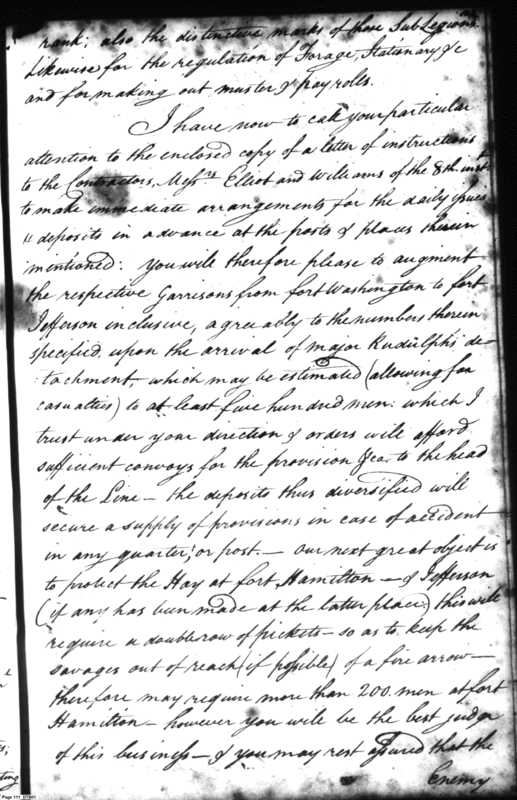 rank; also the distinctive marks of those Sub Legions.
Likewise for the regulation of Forage, Stationary &c
and for making out muster & payrolls.
I have now to call your particular
attention to the enclosed copy of a letter of instructions
to the Contractors, Messrs Elliot and Williams of the 8th. inst.
to make immediate arrangements for the daily issues
& deposits in advance at the posts & places therein
mentioned: you will therefore please to augment
the respective Garrisons from fort Washington to fort
Jefferson inclusive, agreeably to the numbers therein
specified, upon the arrival of major Rudulph's de-
tachment which may be estimated (allowing for
casualties) to at least five hundred men: which I
trust under your direction & orders will afford
sufficient convoys for the provision &ca. to the head
of the Line — the deposits thus diversified will
secure a supply of provisions in case of accident
in any quarter, or post. — our next great object is
to protect the Hay at fort Hamilton — & Jefferson
(if any has been made at the latter place) this will
require a double row of pickets — so as to keep the
savages out of reach (if possible) of a fire arrow —
therefore may require more than 200. men at fort
Hamilton — however you will be the best judge
of this business — & you may rest assured that the
Enemy
ting
Page 111